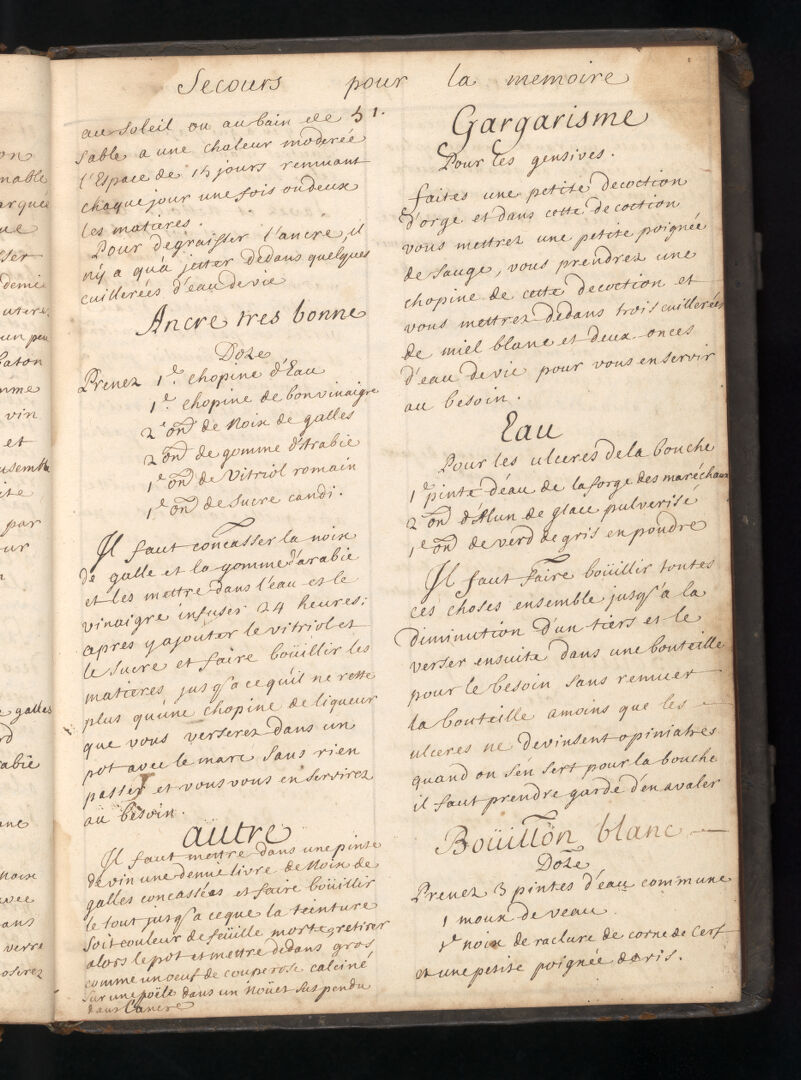 Secours pour la memoire
51.
au soleil ou au bain de
sable a une chaleur moderée
l'Espace de 15 jours remuant
chaque jour une fois ou deux
les matieres.
Pour degraisser l'ancre, il
n'y a qu'a jetter dedans quelques
cuillerées d'eau de vie
Ancre tres bonne
Doze
Prenez 1.e chopine d'Eau
1.e chopine de bon vinaigre
2 on de Noix de galles
2 on de gomme d'Arabie
1.e on de Vitriol romain
1.e on de sucre candi.
Il faut concasser la noix
de galle et la gomme d'arabie
et les mettre dans l'eau et le
vinaigre infuser 24 heures;
apres y ajouter le vitriol et
le sucre et faire boüillir les
matieres jusq'a ce qu'il ne reste
plus qu'une chopine de liqueur
que vous verserez dans un
pot avec le marc sans rien
passer et vous vous en servirez
au besoin.
autre
Il faut mettre dans une pinte
de vin une demie livre de Noix de
galles concassées et faire boüillir
le tout jusq'a ce que la teinture
soit couleur de feüille morte, retirer
alors le pot et mettre dedans gros
comme un oeuf de couperose calciné
sur une poële dans un Noüet suspendu
dans l'ancre
Gargarisme
Pour les gensives.
faites une petite decoction
d'orge et dans cette decoction
vous mettrez une petite poignée
de sauge, vous prendrez une
chopine de cette decoction et
vous mettrez dedans trois cuillerées
de miel blanc et deux onces
d'eau de vie pour vous en servir
au besoin.
Eau
Pour les ulceres de la bouche
1.e pinte d'eau de la forge des maréchaux
2 on d'Alun de glace pulverisé
1.e on de verd de gris en poudre
Il faut faire boüillir toutes
ces choses ensemble jusq'a la
diminution d'un tiers et le
verser ensuite dans une bouteille
pour le besoin sans remuer
la bouteille amoins que les
ulceres ne devinsent opiniatres
quand on s'en sert pour la bouche
il faut prendre garde d'en avaler
Boüillon blanc
Doze
Prenez 3 pintes d'eau commune
1 moux de veau.
1.e noix de raclure de corne de Cerf
et une petite poignée de ris.